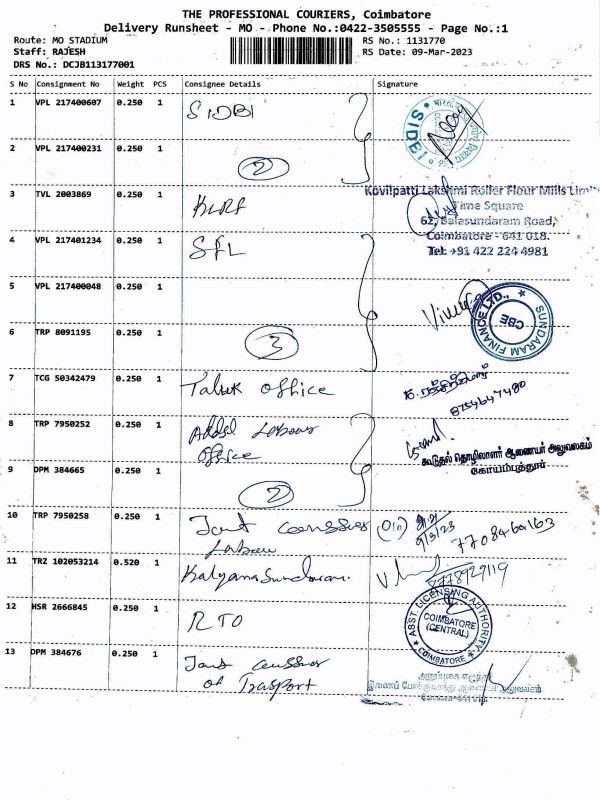 THE PROFESSIONAL COURIERS, Coimbatore
Delivery Runsheet - MO - Phone No.:0422-3505555 - Page No.:1
Route: MO STADIUM
RS No.: 1131770
Staff: RAJESH
RS Date: 09-Mar-2023
DRS No.: DCJB113177001
S No Consignment No Weight PCS Consignee Details Signature
1 VPL 217400607 0.250 1 SIDBI
SIDBI
2 VPL 217400231 0.250 1
2
3 TVL 2003869 0.250 1 KLRF
Kovilpatti Lakshmi Roller Flour Mills Limi
Time Square
62, Balasundaram Road,
Coimbatore - 641 018.
Tel: +91 422 224 4981
4 VPL 217401234 0.250 1 SFL
5 VPL 217400048 0.250 1
SUNDARAM FINANCE LTD.,
CBE
6 TRP 8091195 0.250 1
3
7 TCG 50342479 0.250 1 Taluk office
8754647480
8 TRP 7950252 0.250 1 Addl Labour
office
கூடுதல் தொழிலாளர் ஆணையர் அலுவலகம்
கோயம்புத்தூர்
9 DPM 384665 0.250 1
2
10 TRP 7950258 0.250 1 Joint
Labour
9/3/23
7708464163
11 TRZ 102053214 0.520 1 Kalyanasundaram.
12 HSR 2666845 0.250 1 RTO
ASST. LICENSING AUTHORITY
COIMBATORE
(CENTRAL)
COIMBATORE
13 DPM 384676 0.250 1 Joint
of Trasport